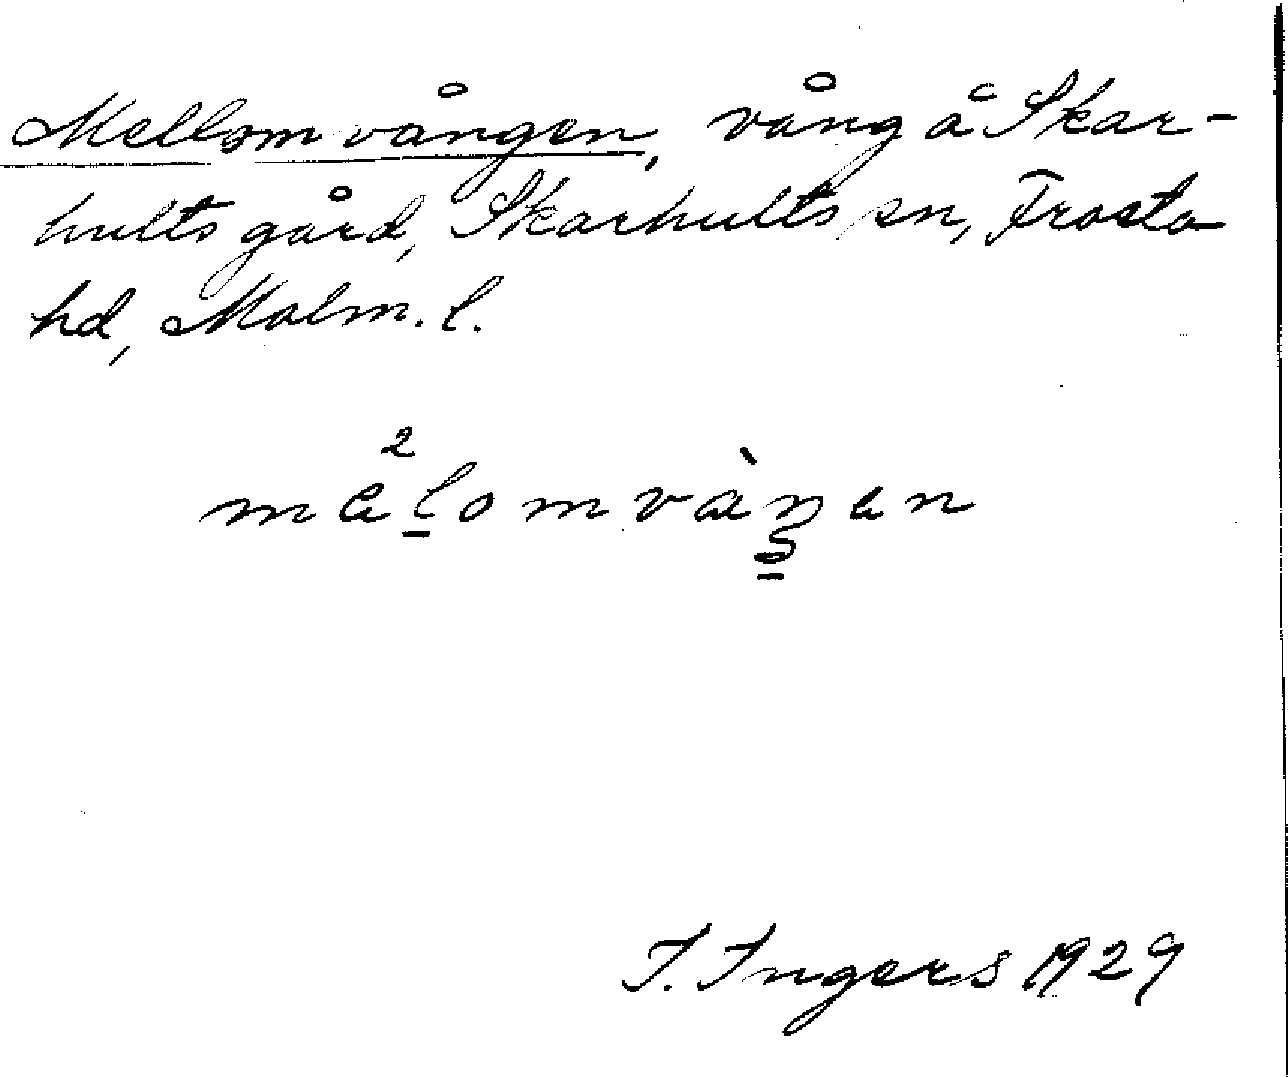 Mellomvången, vång å Skar-
hults gård, Skarhults sn, Frosta
hd, Malm. l.
I. Ingers 1929